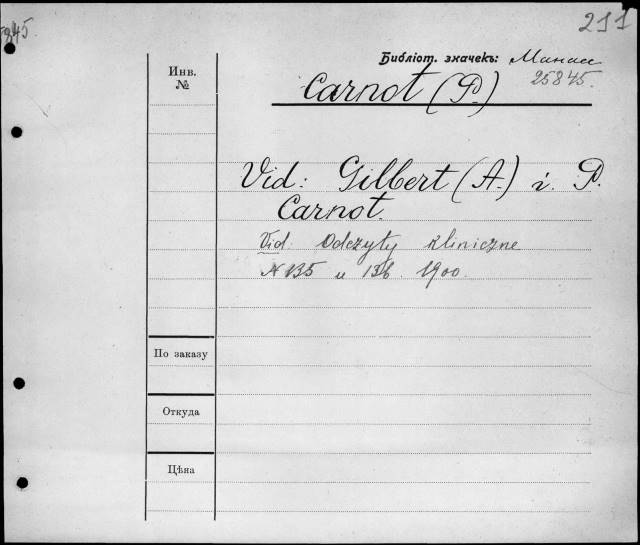 5845.
211
Библіот. значекъ: Манасс
25845.
Инв.
№
Carnot (P.)
Vid: Gilbert (A.) i. P.
Carnot.
Vid. Odczyty kliniczne
N 135 u 136. 1900.
По заказу
Откуда
Цѣна